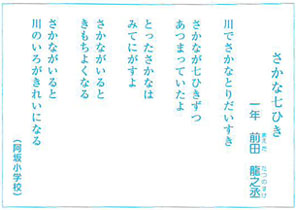 さかな七ひき
一年　前田　龍之丞
まえだ　たつのすけ
川でさかなとりだいすき
さかなが七ひきずつ
あつまっていたよ
とったさかなは
みてにがすよ
さかながいると
きもちよくなる
さかながいると
川のいろがきれいになる
（阿坂小学校）